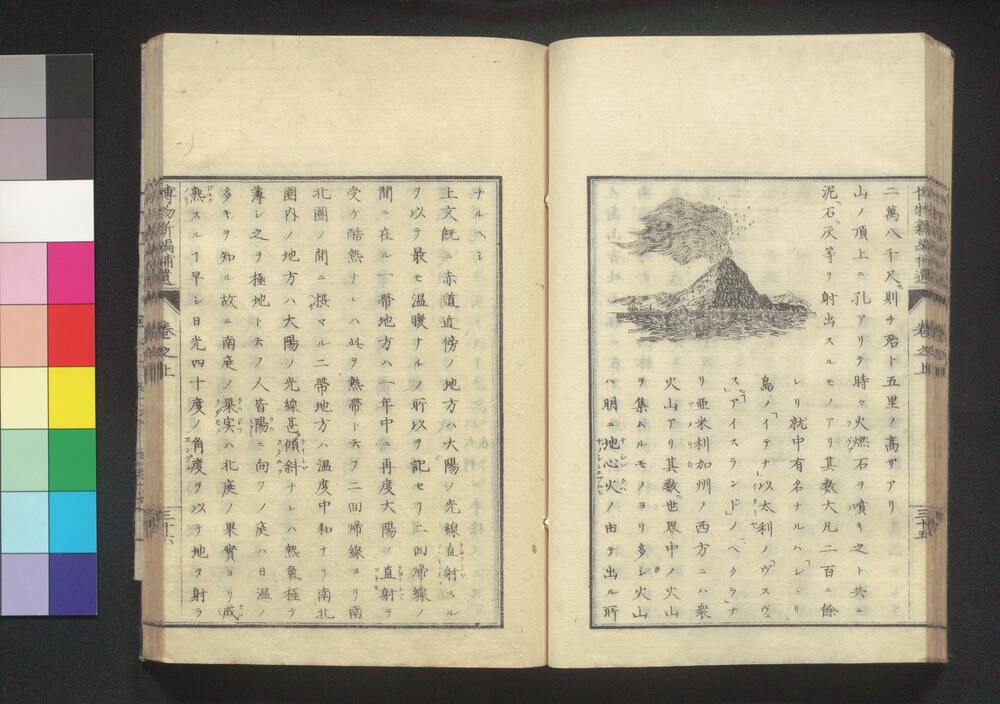 二萬八千尺則チ殆ト五里ノ高サアリ
山ノ頂上ニ孔アリテ時々火燃石ヲ噴キ之ト共ニ
泥石灰等ヲ射出スルモノアリ其数大凡二百ニ餘
レリ就中有名ナルハ
島ノ「イテナ」以太利ノ「ヴスヴ
ス」「アイスランド」ノ「ヘクラナ
リ亜米利加州ノ西方ニハ衆
火山アリ其数世界中ノ火山
ヲ集ムルモノヨリ多シ火山
ハ明ニ地心火ノ由テ出ル所
博物新編補遺
巻之上
三十五
ナルヘシ
上文既ニ赤道近傍ノ地方ハ大陽ノ光線直射スル
ヲ以テ最モ温暖ナルノ所以ヲ記セリ二回帰線ノ
間ニ在ル一帯地方ハ一年中ニ再度大陽ノ直射ヲ
受ケ酷熱ナレハ此ヲ熱帯ト云フ二回帰線ヨリ南
北圏ノ間ニ挾マル二帯地方ハ温度中和ナリ南北
圏内ノ地方ハ大陽ノ光線甚傾斜ナレハ熱氣極テ
薄シ之ヲ極地ト云フ人皆陽ニ向フノ庭ハ日温ノ
多キヲ知ル故ニ南庭ノ果実ハ北庭ノ果實ヨリ成
熟スルヿ早シ日光四十度ノ角度ヲ以テ地ヲ射ラ
博物新編補遺
巻之上
三十六